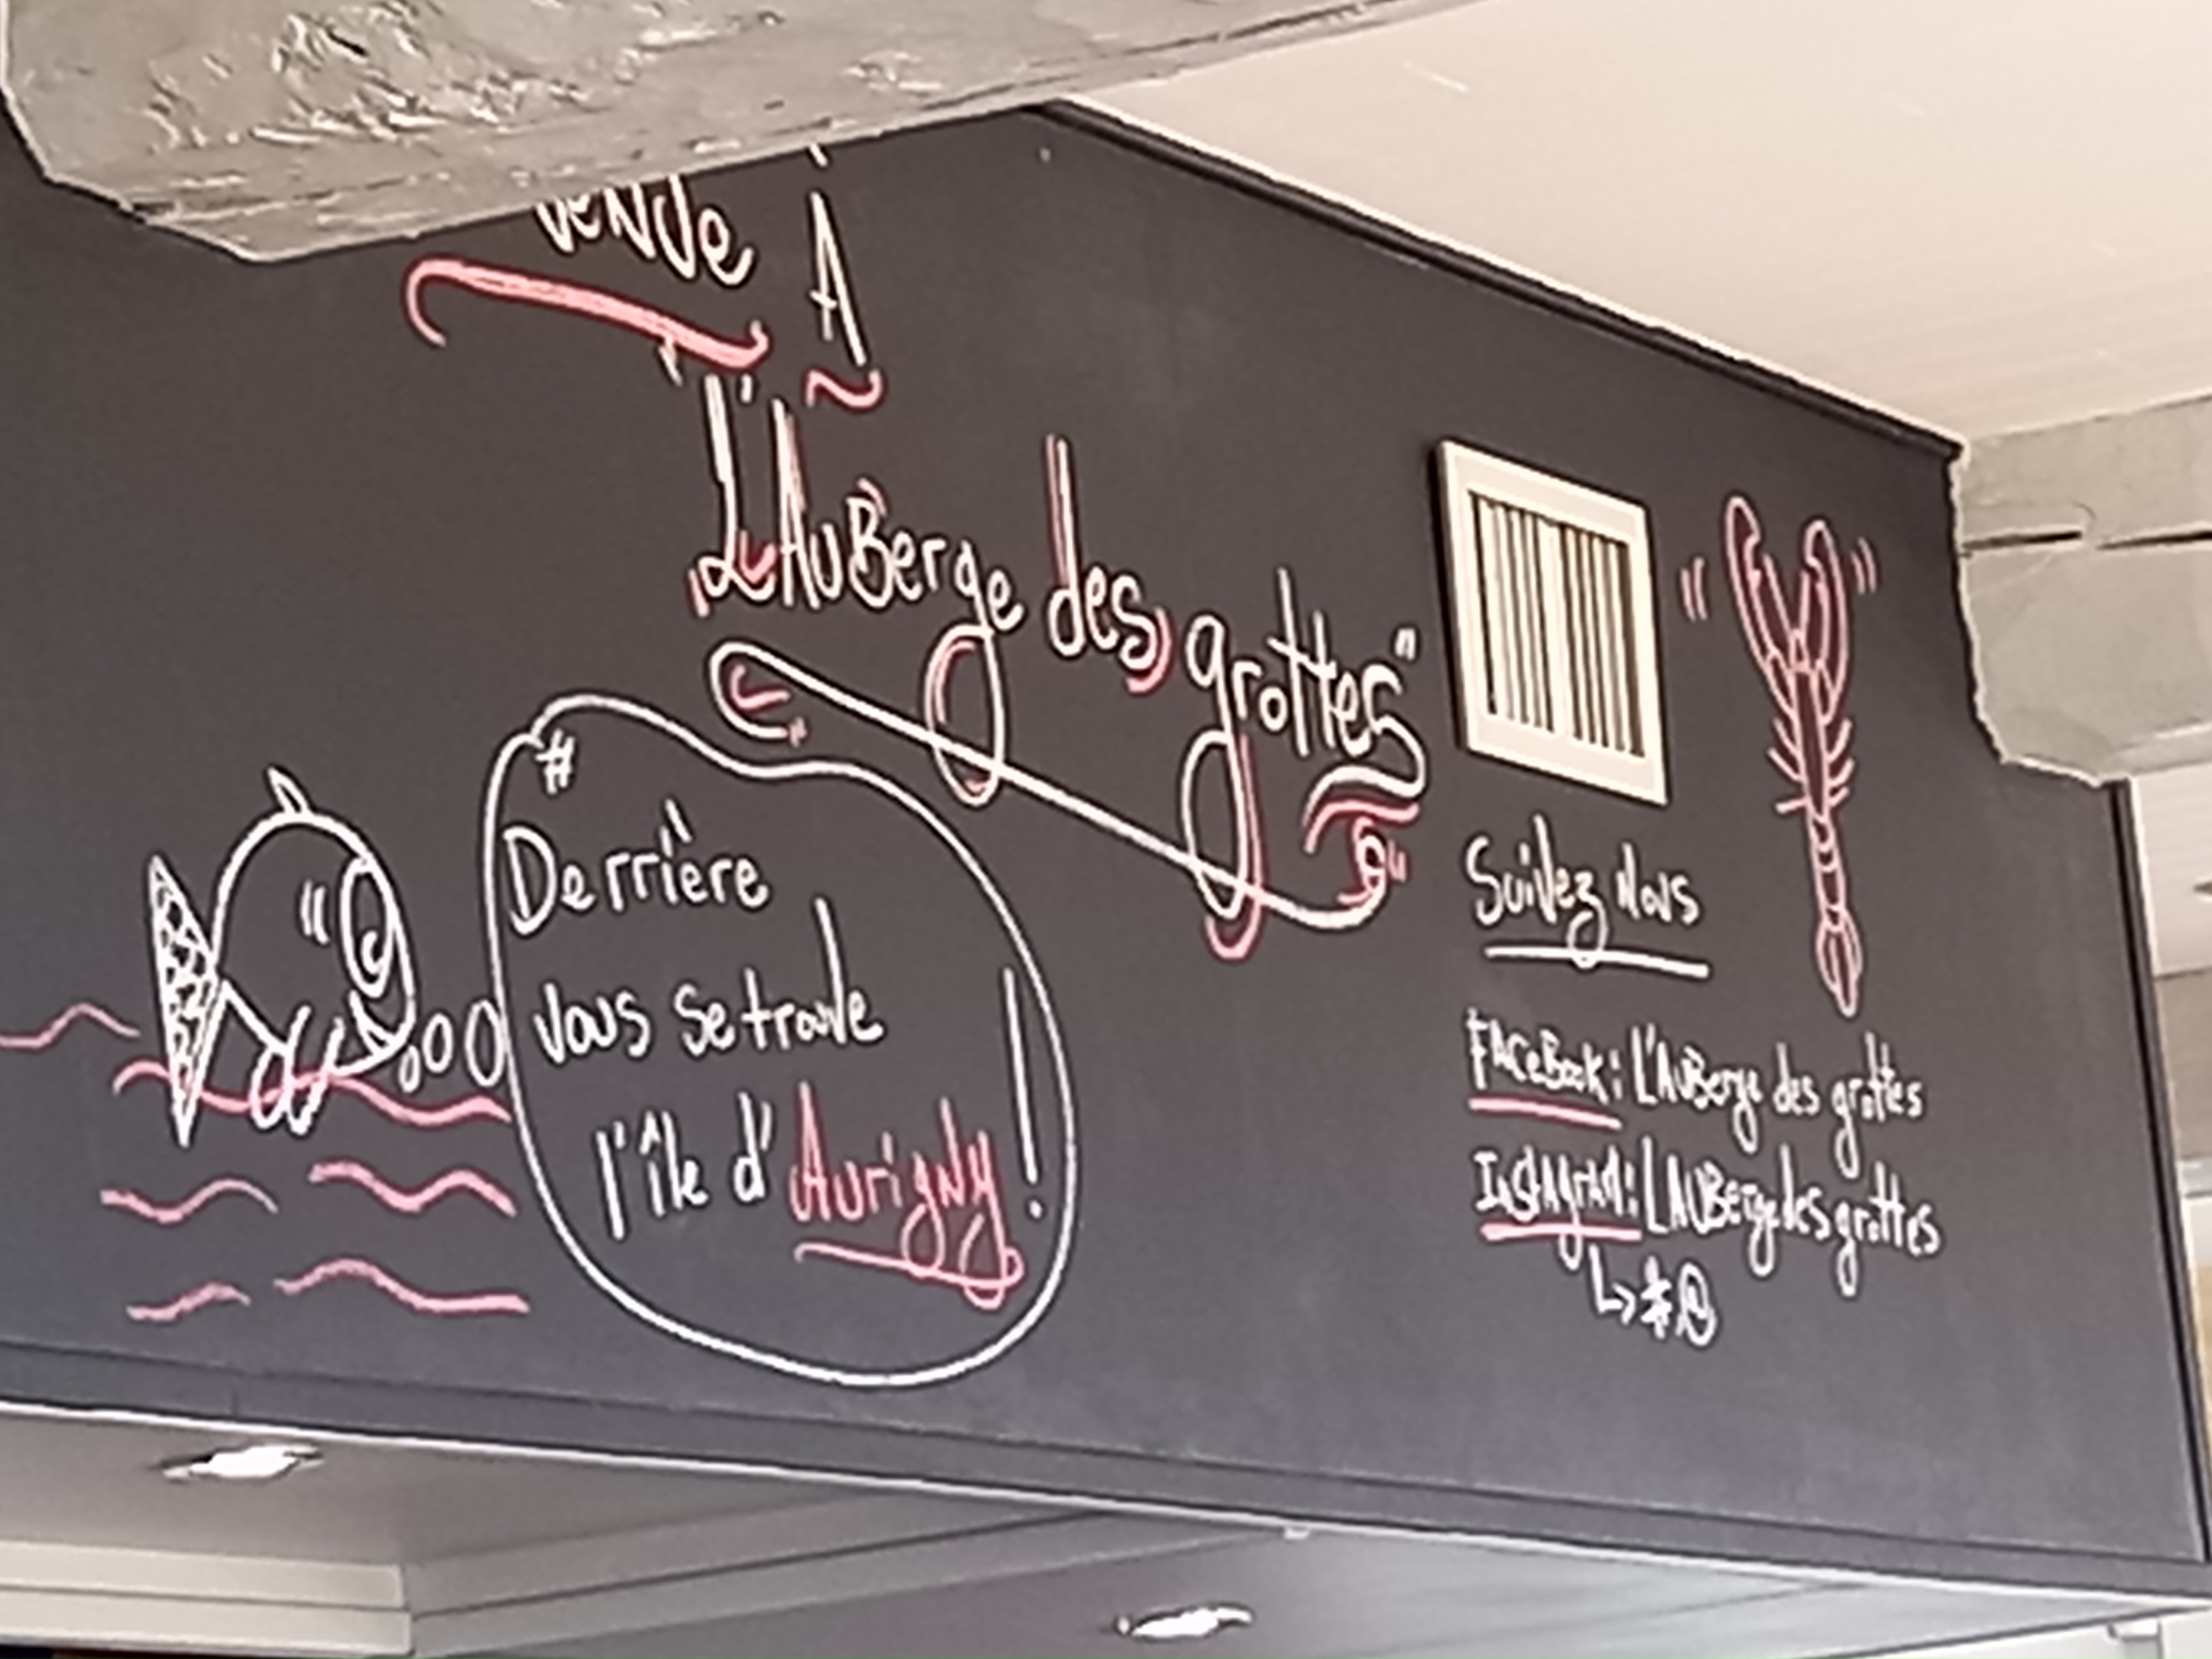 À
"L'AuBerge des grottes"
#
Derrière
vous se trouve
l'île d'Aurigny !
Suivez Nous
FACeBook : L'AuBerge des grottes
INSTAgrAM : LAUBergedesgrottes
↳ # @